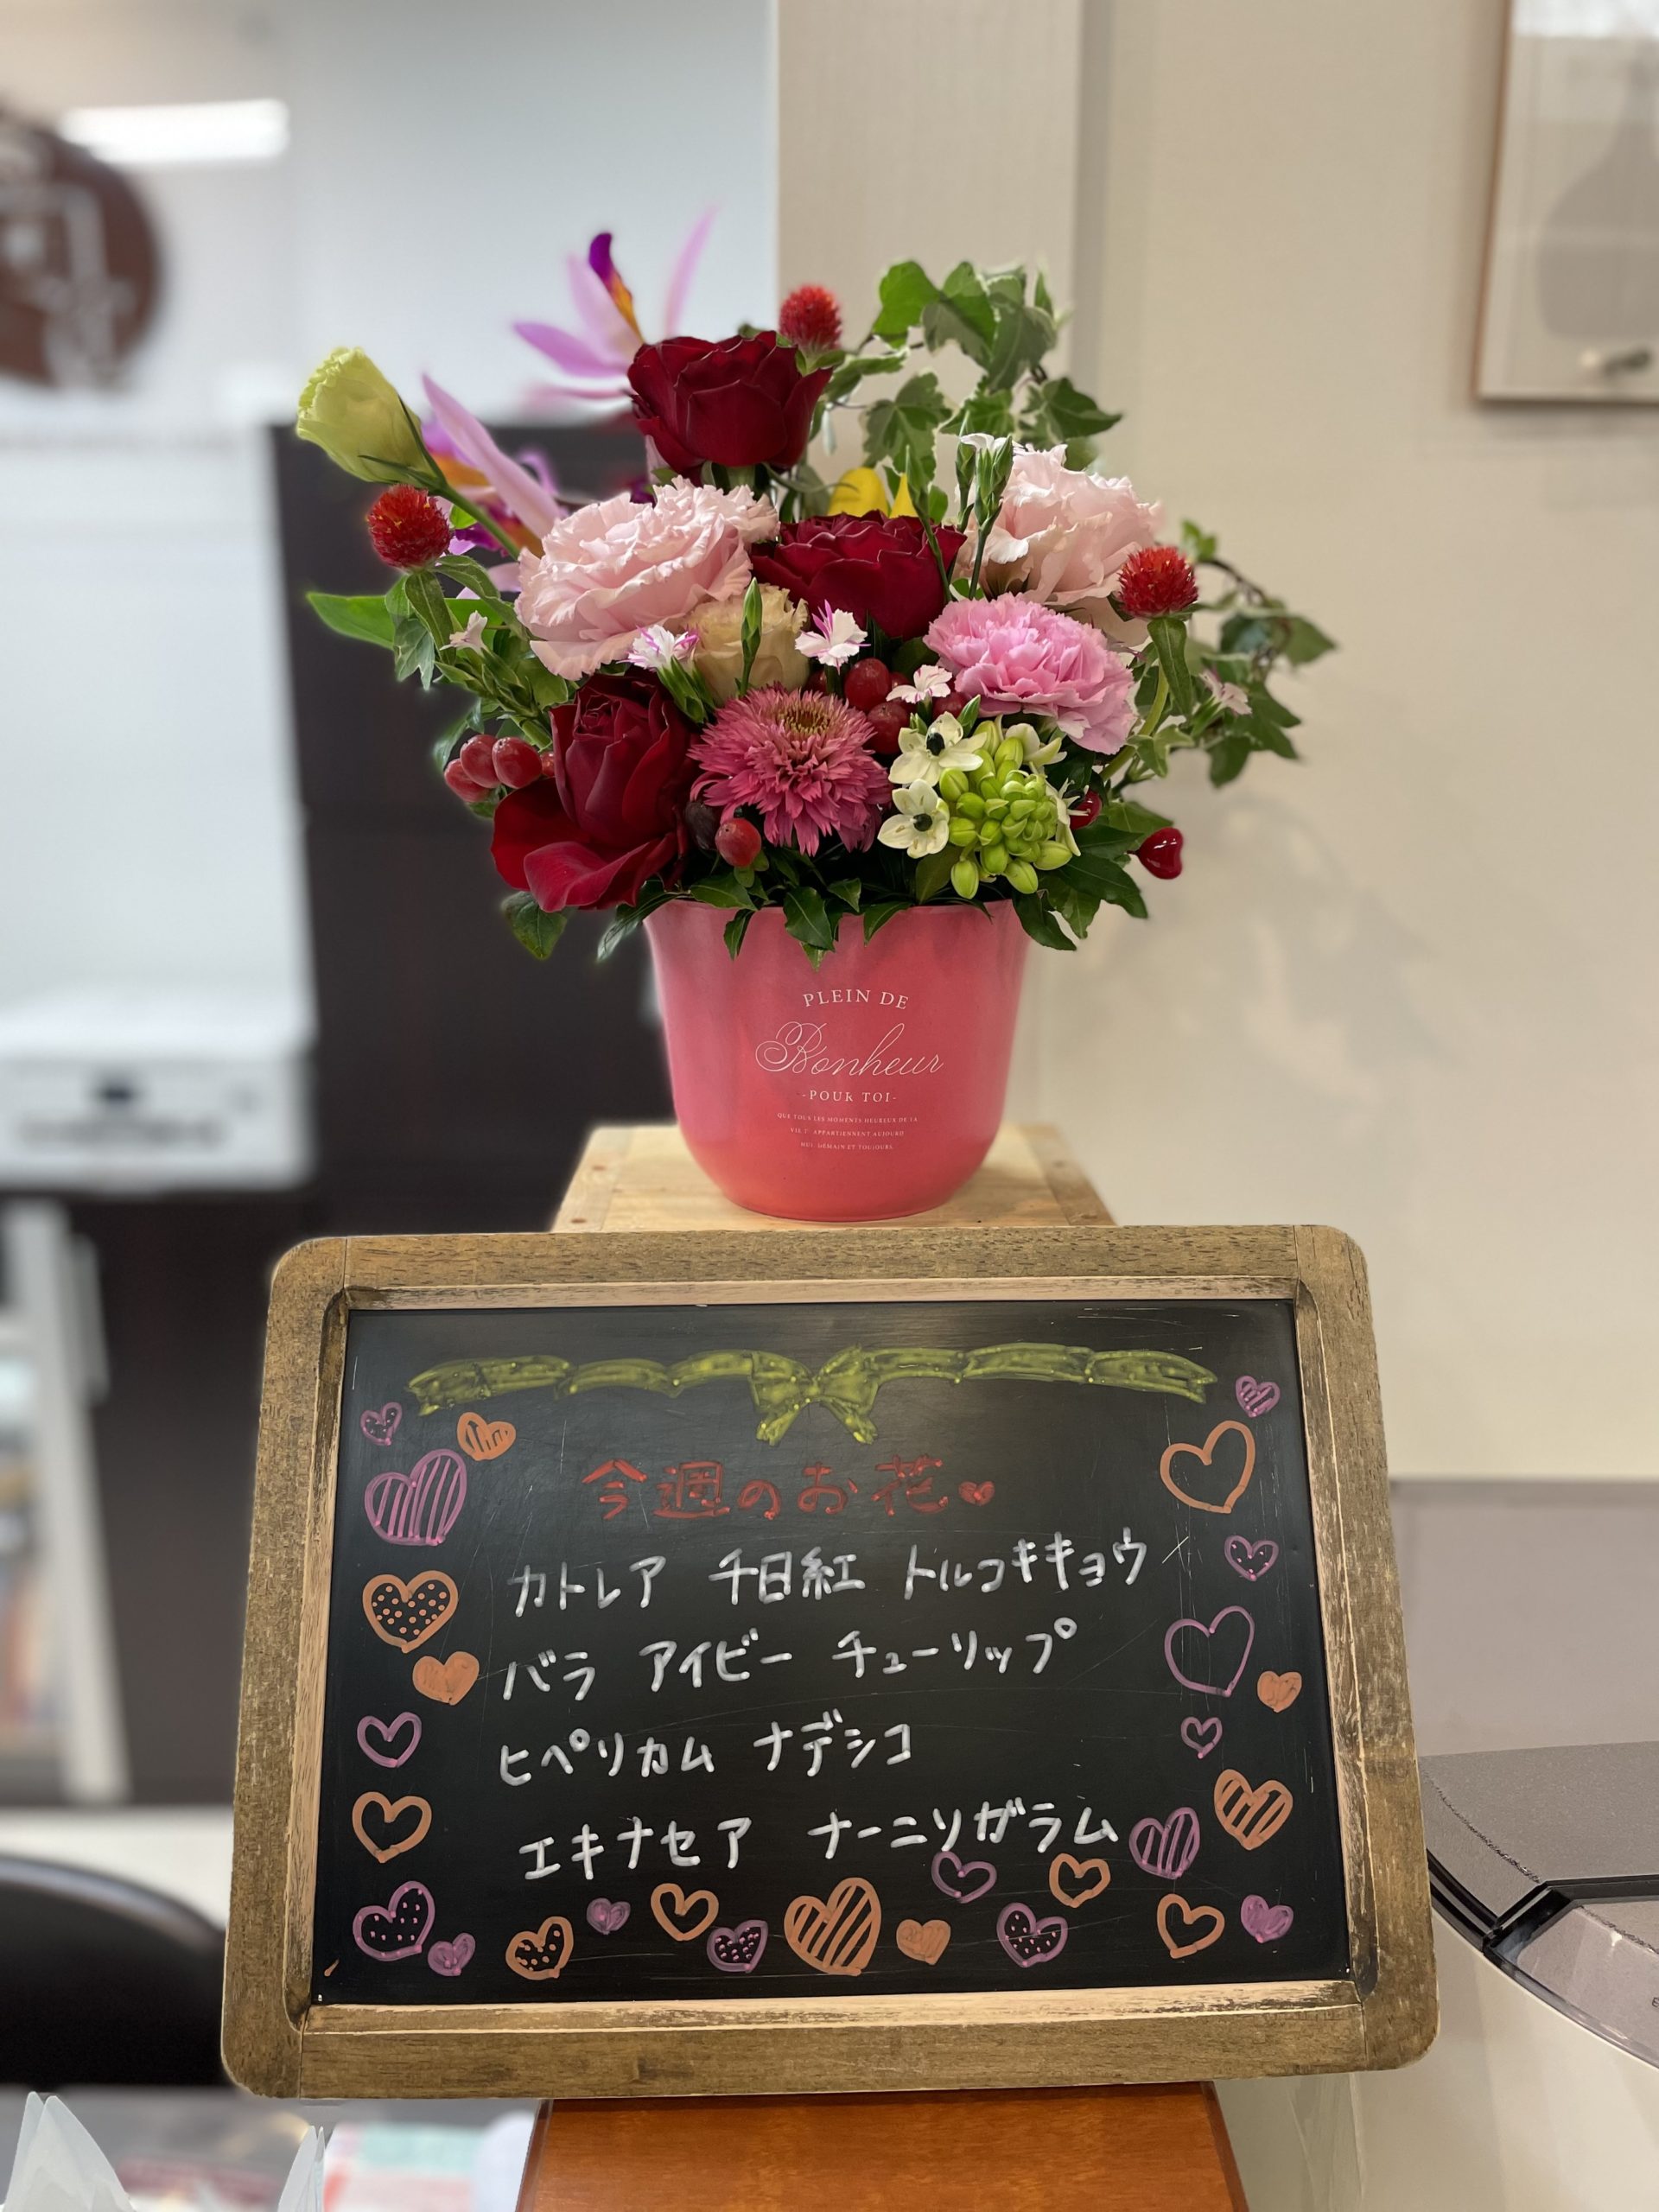 PLEIN DE
Bonheur
-POUR TOI-
QUE TOUS LES MOMENTS HEUREUX DE TA
VIE T' APPARTIENNENT AUJOURD
HUI DEMAIN ET TOUJOURS
今週のお花
カトレア 千日紅 トルコキキョウ
バラ アイビー チューリップ
ヒペリカム ナデシコ
エキナセア ナーニソガラム